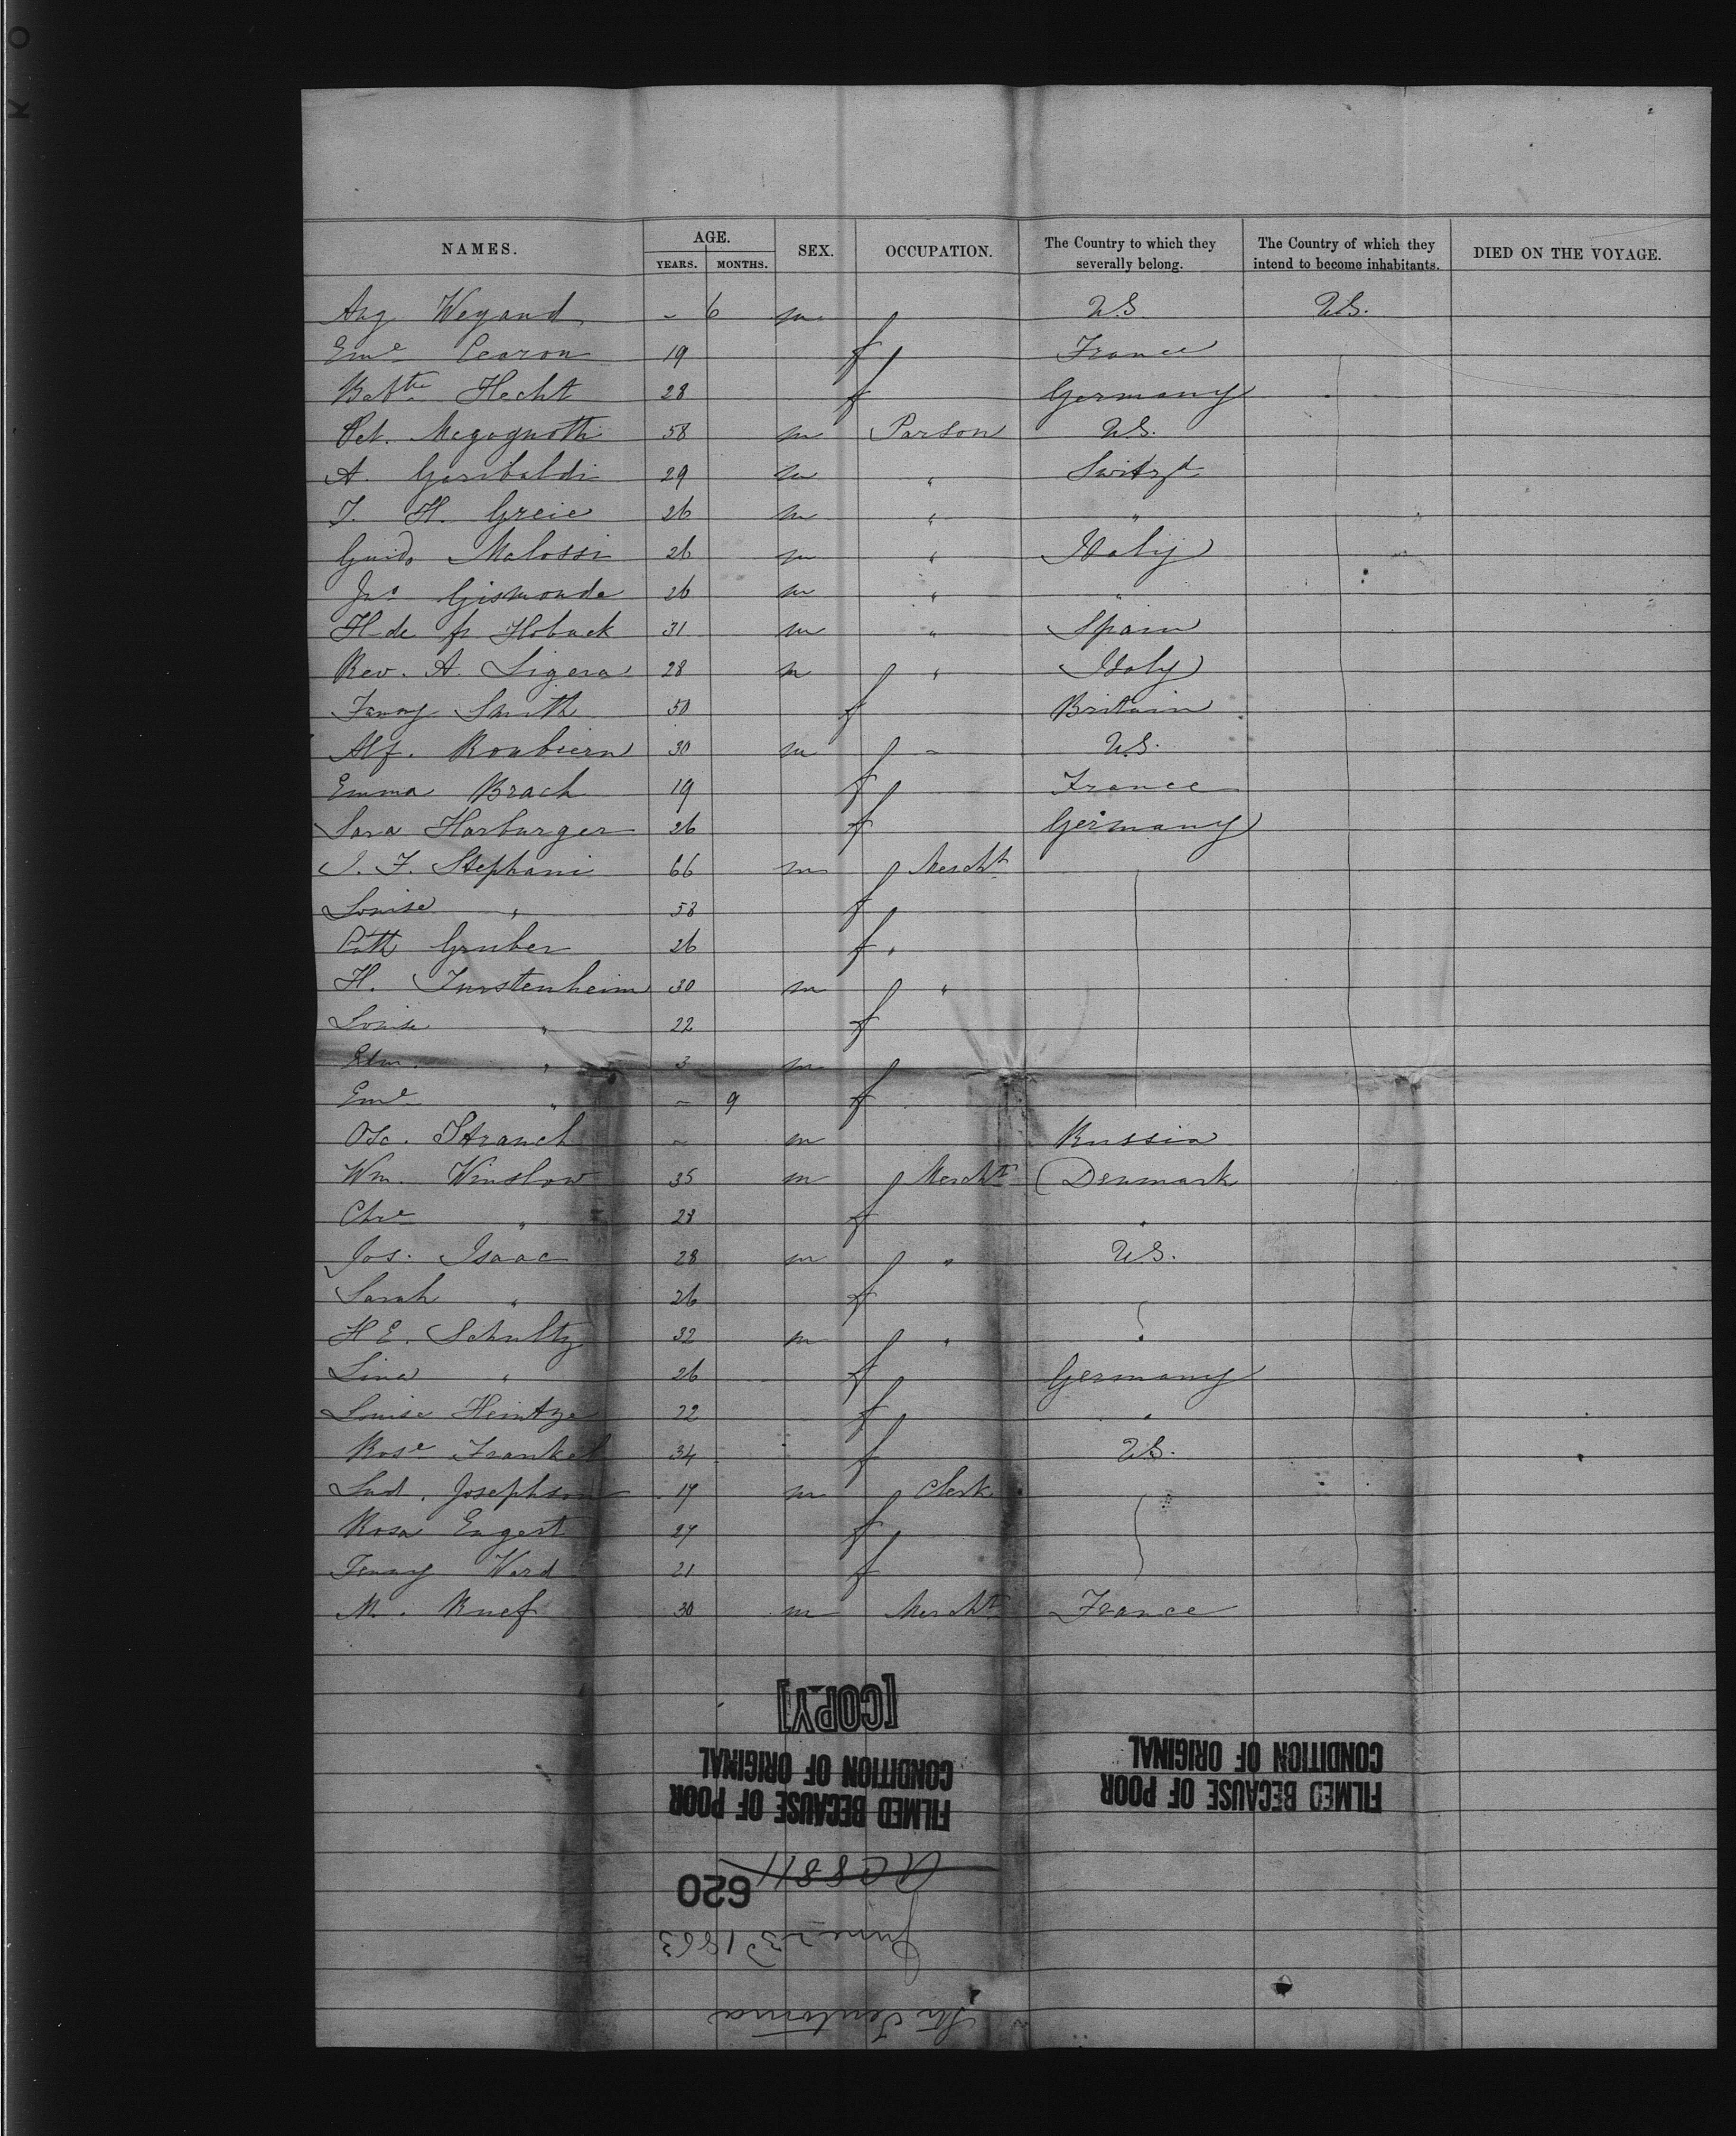 NAMES. AGE. SEX. OCCUPATION. The Country to which they severally belong. The Country of which they intend to become inhabitants. DIED ON THE VOYAGE.
YEARS. MONTHS.
Aug Weyand - 6 m U.S. U.S.
Eme Cearon 19 f France
Babtte Hecht 28 f Germany
Pet. 58 m Parson U.S.
A. Garibaldi 29 m " Switzd
J. H. Greie 26 m " "
Guido Malossi 26 m " Italy
Jno Gismonde 26 m " "
H de fr Hoback 31 m " Spain
Rev. A. Ligera 28 m " Italy
Fanny Smith 50 f Britain
Alf. Roubiern 30 m - U.S.
Emma Brach 19 f France
Sara Harburger 26 f Germany
J. F. Stephani 66 m Mercht
Louise " 58 f
Cath Gruber 26 f "
H. Furstenheim 30 m "
Louise " 22 f
Edm. " 3 m
Eme " - 9 f
Osc. Stranch - m Russia
Wm. Winslow 35 m Mercht Denmark
Chre " 28 f "
Jos. Isaac 28 m " U.S.
Sarah " 26 f
H E. Schultz 32 m " "
Lina " 26 f Germany
Louise Heintze 22 f "
Rose Frankel 34 f U.S.
Lud. Josephson 17 m Clerk
Rosa Engert 27 f
Fenny Ward 21 f
M. Ruef 30 m Mercht France
[COPY]
FILMED BECAUSE OF POOR
CONDITION OF ORIGINAL
FILMED BECAUSE OF POOR
CONDITION OF ORIGINAL
620
June 23d 1863
Str Teutonia